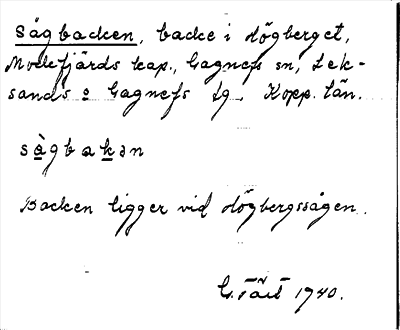 Sågbacken, backe i Högberget,
Mockfjärds kap., Gagnefs sn, Lek-
sands o Gagnefs tg. Kopp. län.
sågbakən
Backen ligger vid Högbergssågen.
G. 1940.